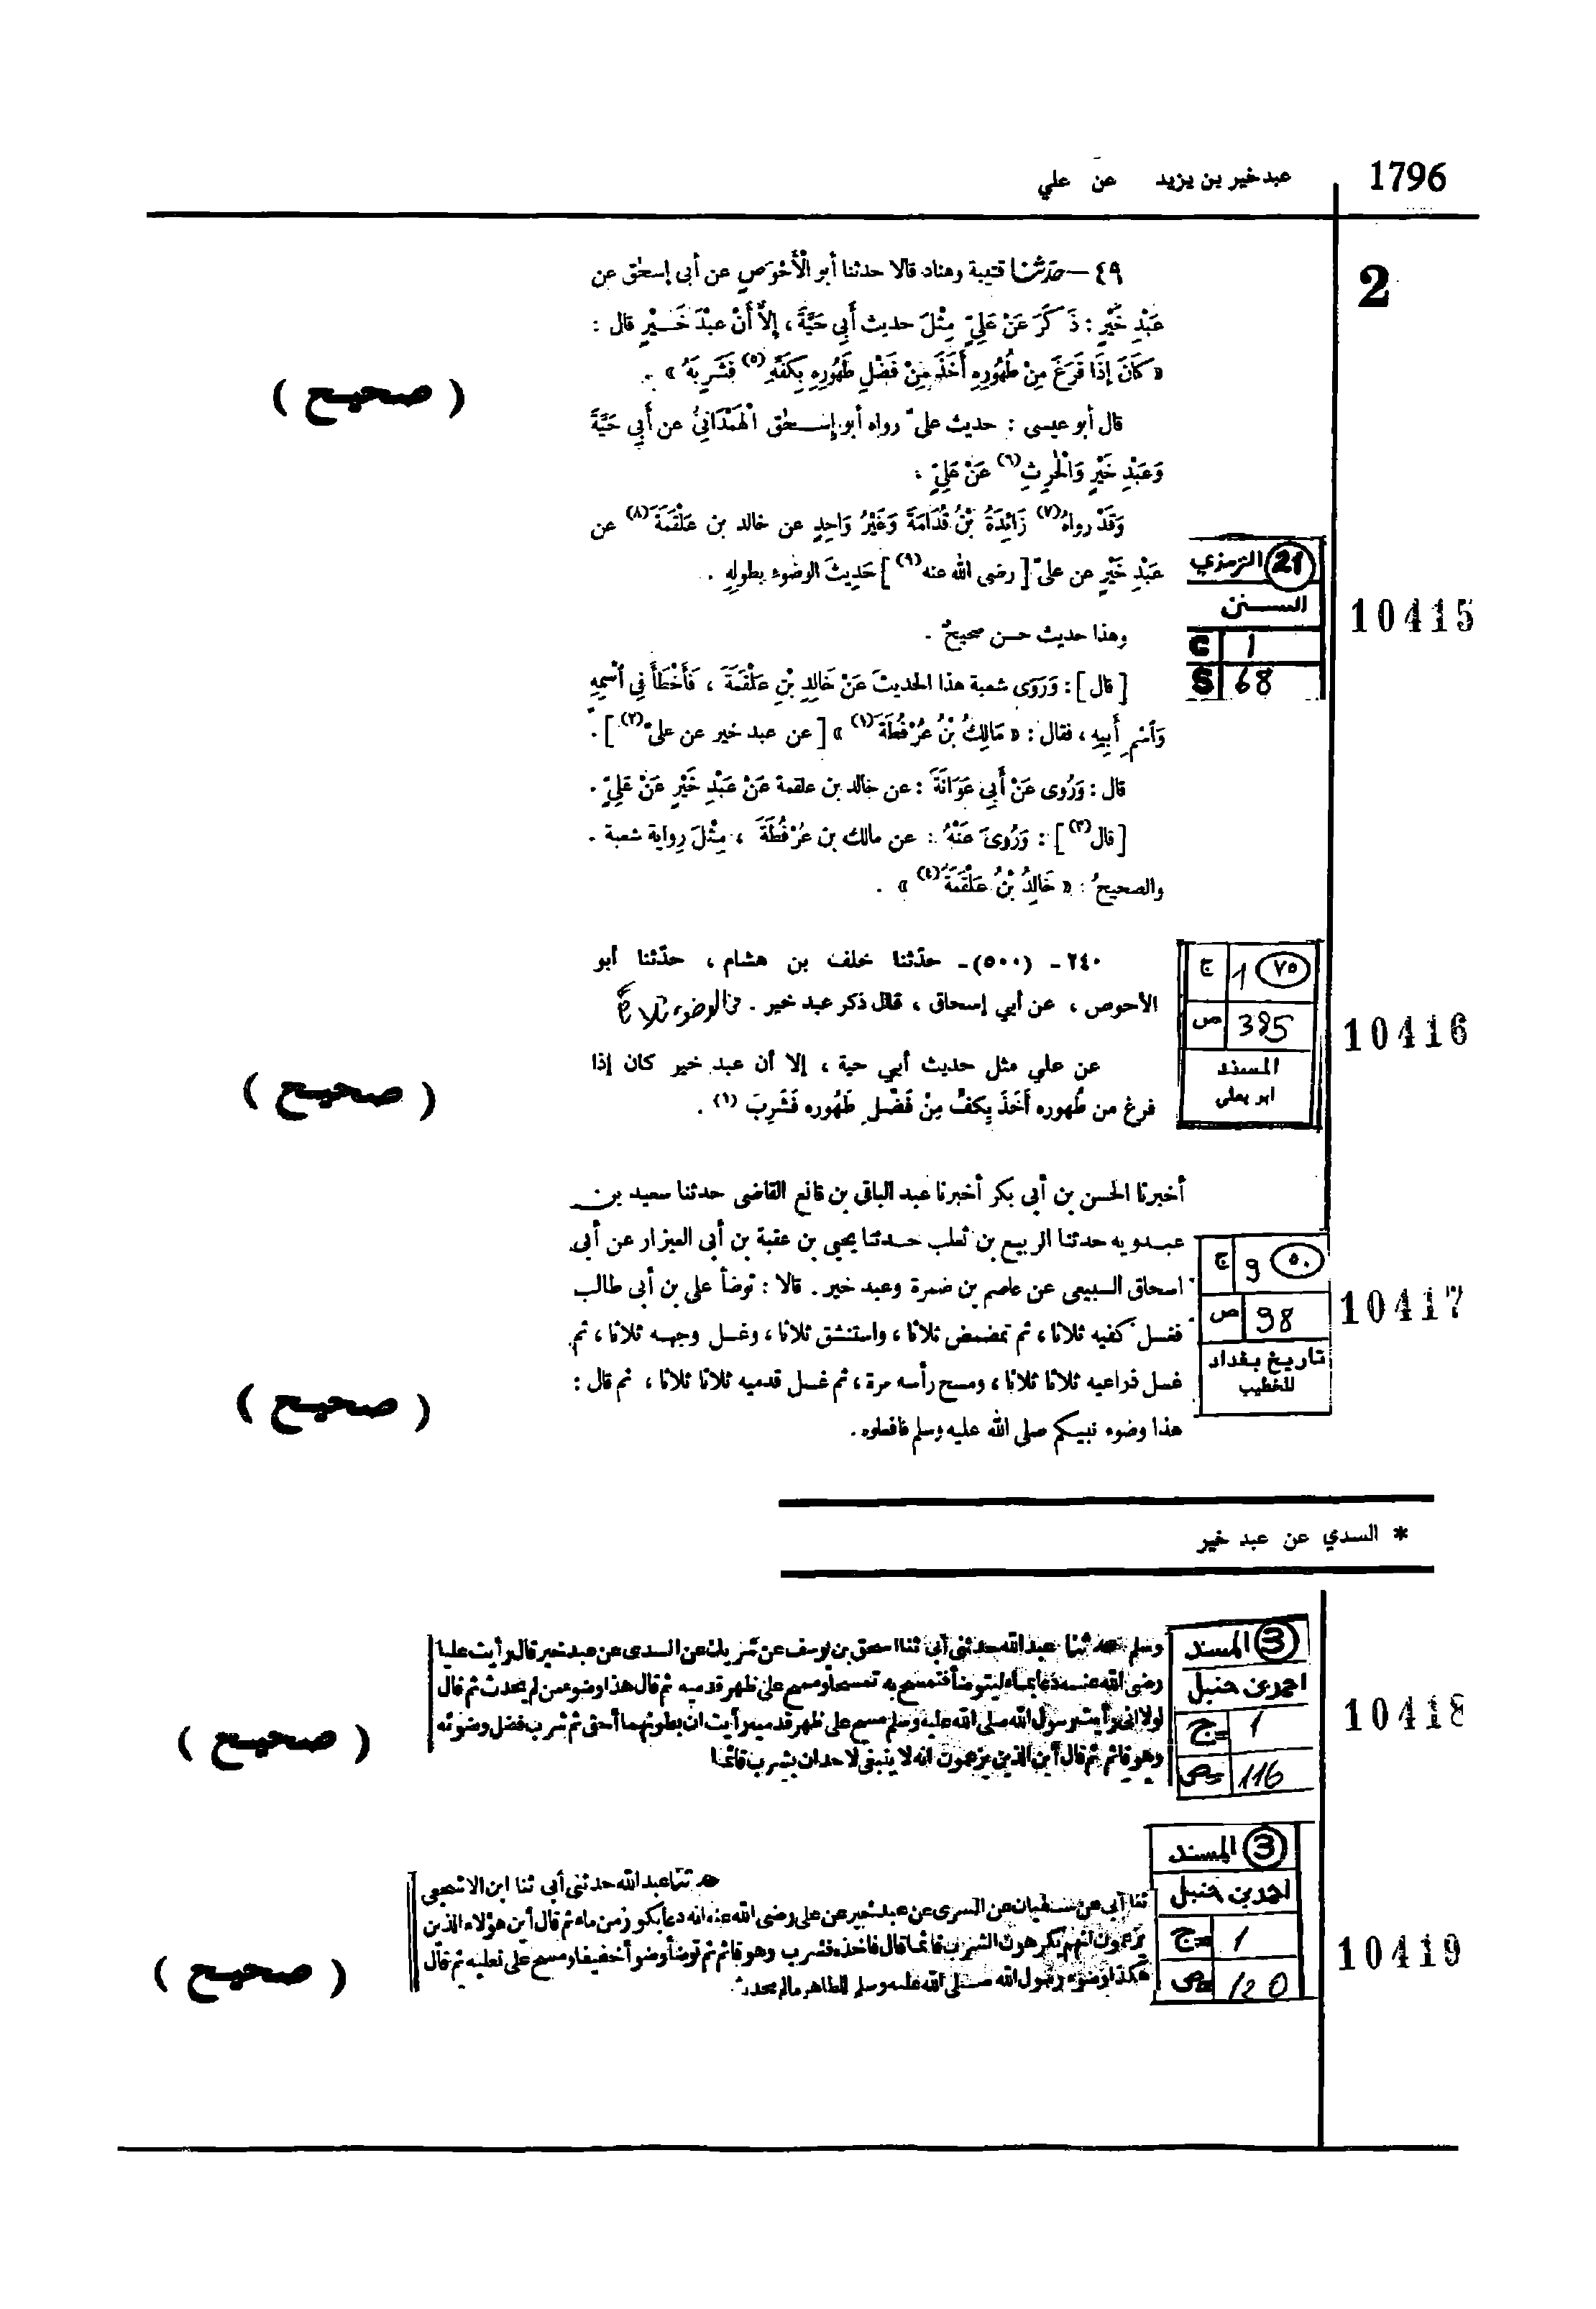 1796
عبد خير بن يزيد عن علي
2
٤٩ – حَدَّثَنَا قتيبة وهناد قالا حدثنا أبو الْأَحْوَصِ عن أبى إسحٰق عن
عَبْدِ خَيْرٍ : ذَكَرَ عَنْ عَلِيٍّ مِثْلَ حديث أَبِي حَيَّةَ ، إِلاَّ أَنْ عبْدَ خَــيْرٍ قال :
« كَانَ إِذَا فَرَغَ مِنْ طُهُورِهِ أَخَذَ مِنْ فَضْلِ طَهُورِهِ بِكَفِّهِ (٥) فَشَرِبَهُ » .
( صحيح )
قال أبو عيسى : حديث علىّ رواه أبو إســحٰق الْهَمْدَانِيُّ عن أَبِي حَيَّةَ
وَعَبْدِ خَيْرٍ وَالْحٰرِثِ (٦) عَنْ عَلِيٍّ .
وَقَدْ رواهُ (٧) زَائِدَةُ بْنُ قُدَامَةَ وَغَيْرُ وَاحِدٍ عن خالد بن عَلْقَمَةَ (٨) عن
عَبْدِ خَيْرٍ عن علىّ [ رضى الله عنه (٩) ] حَدِيثَ الوضوء بطولِهِ .
وهذا حديث حسن صحيحٌ .
[ قال ] : وَرَوَى شعبة هذا الحديثَ عَنْ خَالِدِ بْنِ عَلْقَمَةَ ، فَأَخْطَأَ فِى اُسْمِهِ
وَاُسْمِ أَبِيهِ ، فقال : « مَالِكُ بْنُ عُرْفُطَةَ (١) » [ عن عبد خير عن علىّ (٢) ] .
قال : وَرُوِى عَنْ أَبِى عَوَانَةَ : عن خالد بن علقمة عَنْ عَبْدِ خَيْرٍ عَنْ عَلِيٍّ .
[ قال (٣) ] : وَرُوِىَ عَنْهُ : عن مالك بن عُرْفُطَةَ ، مِثْلَ رِواية شعبة .
والصحيحُ : « خَالِدُ بْنُ عَلْقَمَةَ (٤) » .
21 الترمذي
السنن
C 1
S 68
10415
٢٤٠ – (٥٠٠) – حدّثنا خلف بن هشام ، حدّثنا أبو
الأحوص ، عن أبي إسحاق ، قال ذكر عبد خير . في الوضوء ثلاثاً
عن علي مثل حديث أبي حية ، إلا أن عبد خير كان إذا
فرغ من طُهوره أَخَذَ بِكفٍّ مِنْ فَضْلِ طَهُوره فَشَرِبَ (١) .
( صحيح )
ج 1 ٧٥
ص 385
المسند
ابو يعلى
10416
أخبرنا الحسن بن أبى بكر أخبرنا عبد الباقى بن قانع القاضى حدثنا سعيد بن
عبدويه حدثنا الربيع بن ثعلب حدثنا يحيى بن عقبة بن أبى العيزار عن أبى
اسحاق السبيعى عن عاصم بن ضمرة وعبد خير . قالا : توضأ على بن أبى طالب
فغسل كفيه ثلاثا ، ثم تمضمض ثلاثا ، واستنشق ثلاثا ، وغسل وجهه ثلاثا ، ثم
غسل ذراعيه ثلاثا ثلاثا ، ومسح رأسه مرة ، ثم غسل قدميه ثلاثا ثلاثا ، ثم قال :
هذا وضوء نبيكم صلى الله عليه وسلم فافعلوه .
( صحيح )
ج 9 ٥٠
ص 98
تاريخ بغداد
للخطيب
10417
* السدي عن عبد خير
وسلم حدثنا عبد الله حدثنى أبى ثنا اسحق بن يوسف عن شريك عن السدى عن عبد خير قال رأيت عليا
رضى الله عنه دعا بماء ليتوضأ فتمسح به تمسحا ومسح على ظهر قدميه ثم قال هذا وضوء من لم يحدث ثم قال
لولا انى رأيت رسول الله صلى الله عليه وسلم مسح على ظهر قدميه رأيت ان بطونهما أحق ثم شرب فضل وضوئه
وهو قائم ثم قال أين الذين يزعمون انه لا ينبغى لاحد ان يشرب قائما
( صحيح )
3 المسند
احمد بن حنبل
ج 1
ص 116
10418
حدثنا عبد الله حدثنى أبى ثنا ابن الاشجعى
ثنا أبى عن سفيان عن السدى عن عبد خير عن على رضى الله عنه انه دعا بكوز من ماء ثم قال أين هؤلاء الذين
يزعمون انهم يكرهون الشرب قائما قال فاخذه فشرب وهو قائم ثم توضأ وضوأ خفيفا ومسح على نعليه ثم قال
هكذا وضوء رسول الله صلى الله عليه وسلم للطاهر مالم يحدث
( صحيح )
3 المسند
احمد بن حنبل
ج 1
ص 120
10419